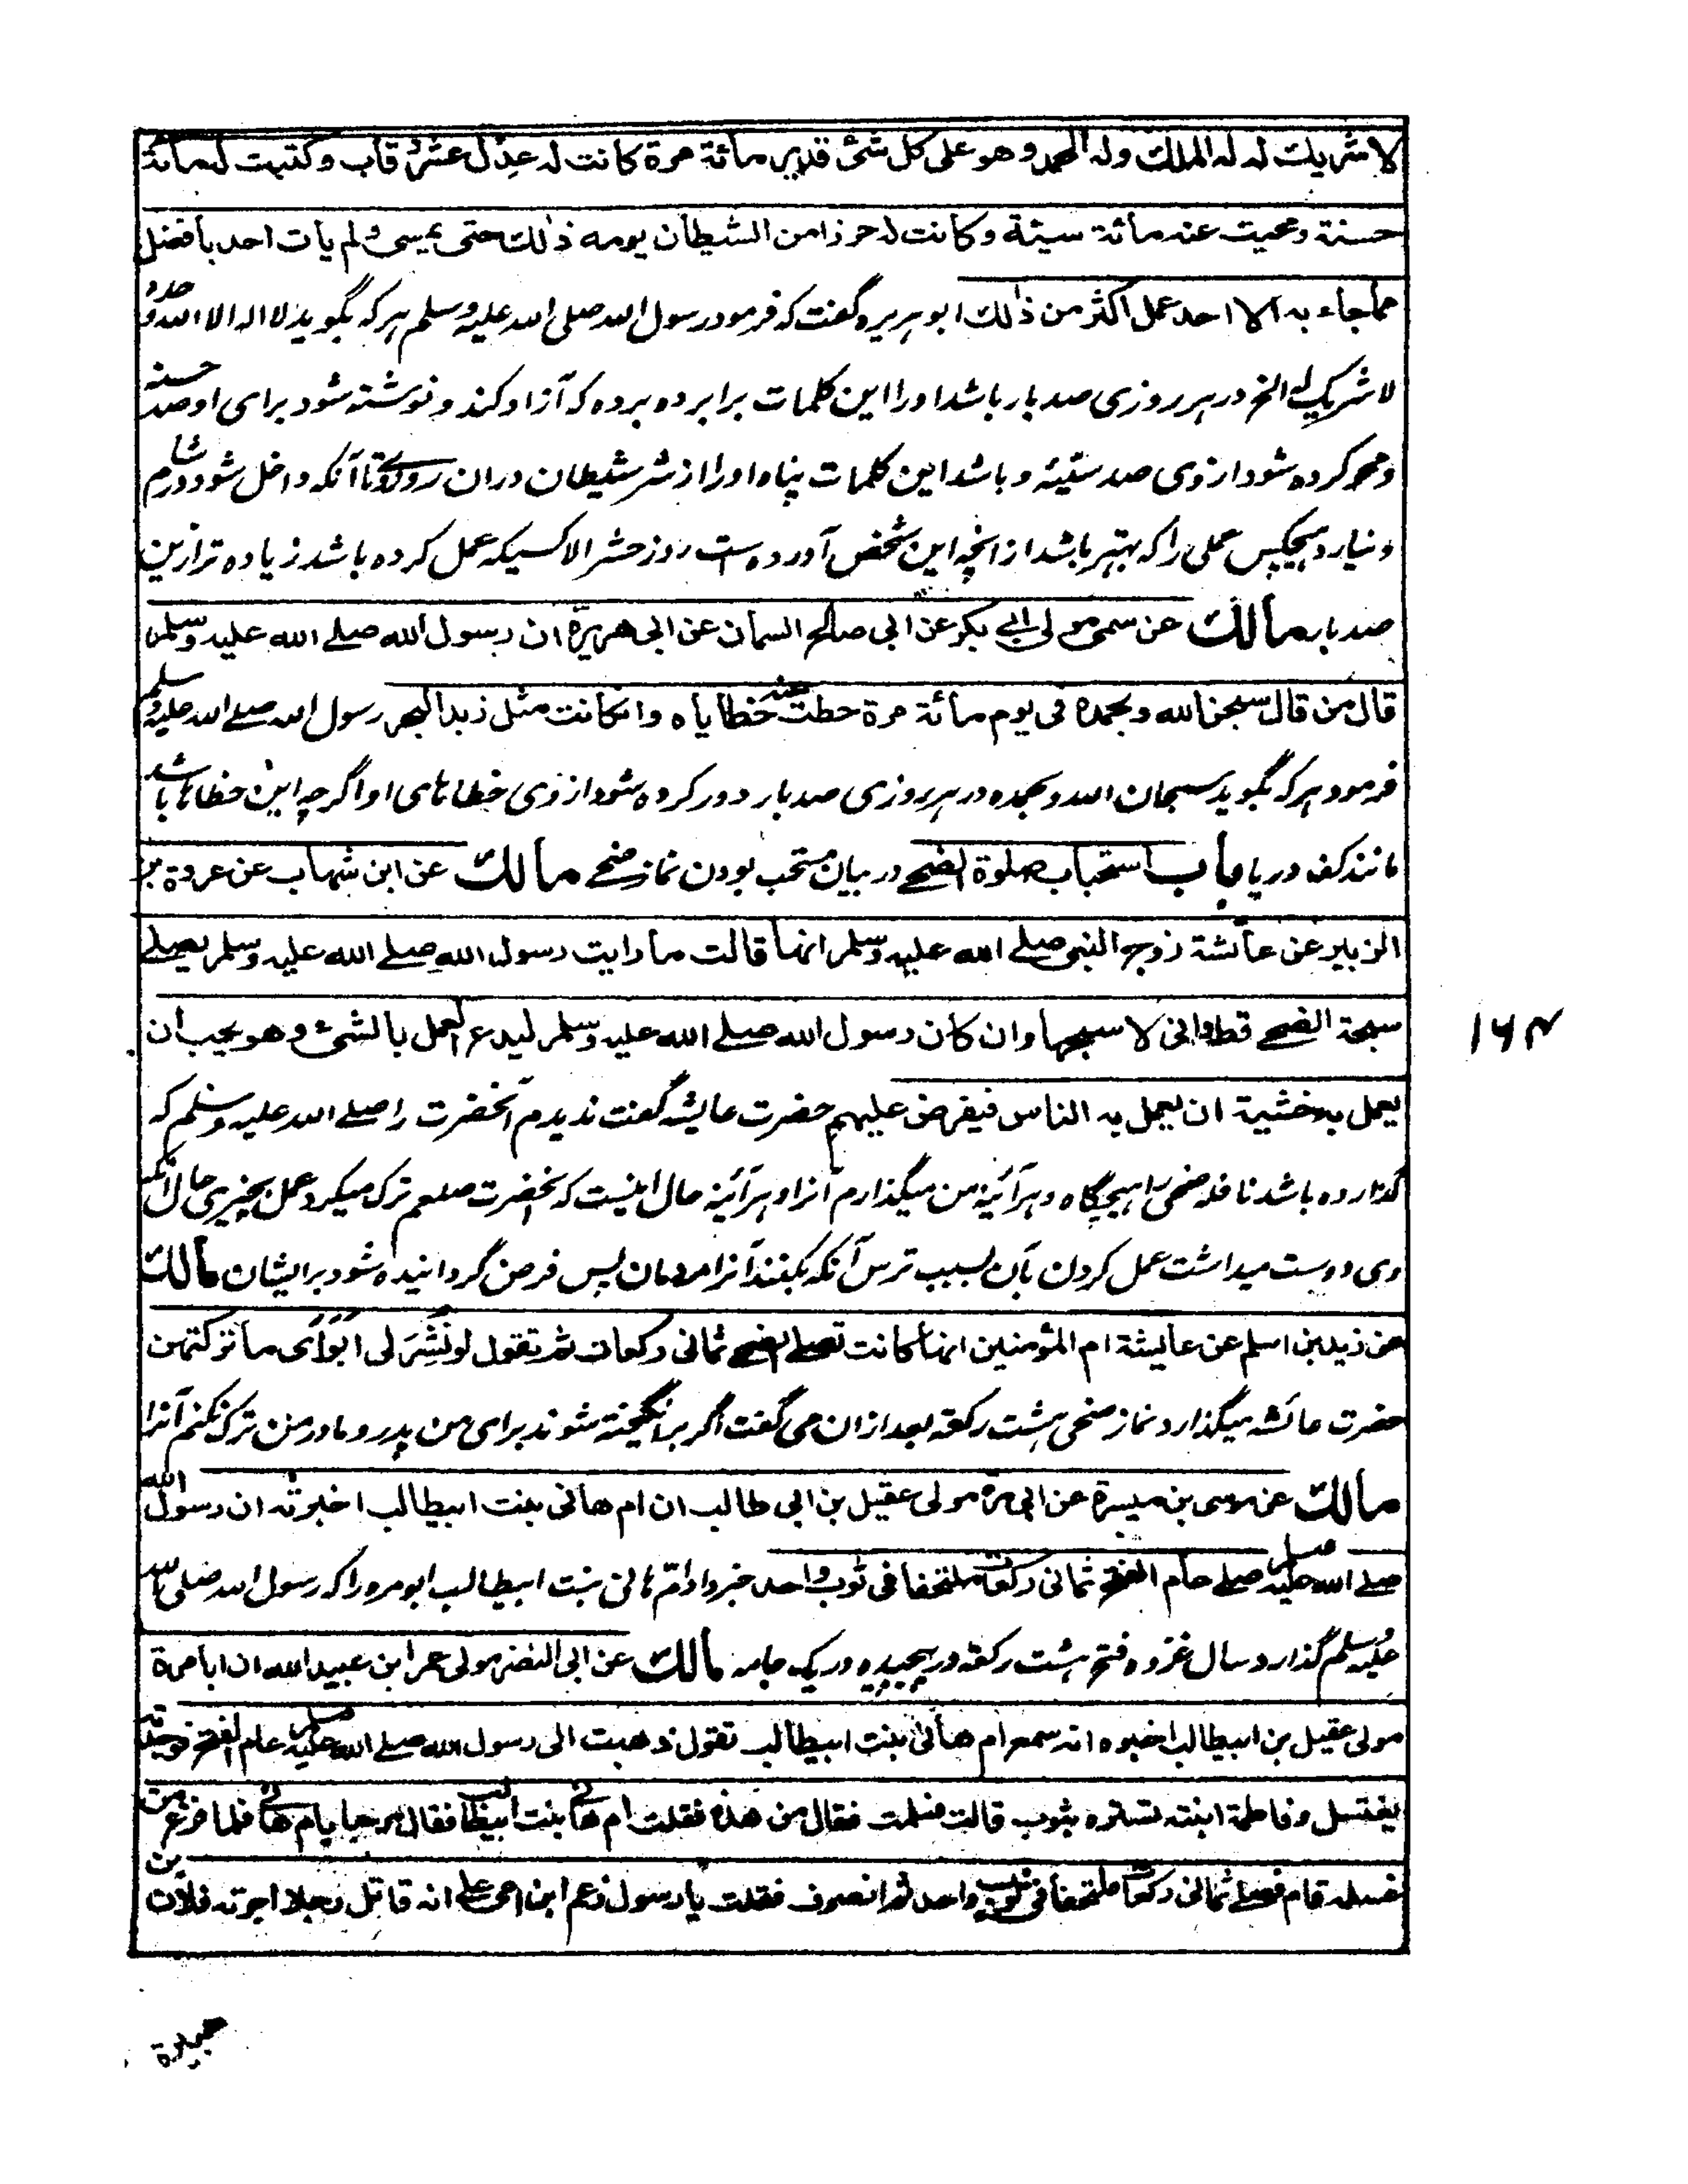 لا شريك له له الملك وله الحمد وهو على كل شئ قدير مائة مرة كانت له عدل عشر رقاب وكتبت له مائة
حسنة ومحيت عنه مائة سيئة وكانت له حرزا من الشيطان يومه ذلك حتى يمسى ولم يأت احد بأفضل
مما جاء به الا احد عمل اكثر من ذلك ابو هریره گفت که فرمود رسول الله صلی الله علیه وسلم هر که بگوید لا اله الا الله وحده
لا شریک له الخ در هر روزی صد بار باشد او را این کلمات برابر ده برده که آزاد کند و نوشته شود برای او صد حسنه
و محو کرده شود از وی صد سیئه و باشد این کلمات پناه او را از شر شیطان در ان روز تا آنکه داخل شود در شام
و نیارد هیچکس عملی را که بهتر باشد از انچه این شخص آورده است روز حشر الا کسیکه عمل کرده باشد زیاده تر ازین
صد بار مالك عن سمى مولى ابى بكر عن ابى صالح السمان عن ابى هريرة ان رسول الله صلے الله عليه وسلم
قال من قال سبحن الله وبحمده فى يوم مائة مرة حطت عنه خطاياه وانكانت مثل زبد البحر رسول الله صلے الله علیه وسلم
فرمود هر که بگوید سبحان الله وبحمده در هر روزی صد بار دور کرده شود از وی خطاهای او اگرچه این خطاها باشد
مانند کف دریا باب استحباب صلوة الضحے در بیان مستحب بودن نماز ضحے مالك عن ابن شهاب عن عروة بن
الزبير عن عائشة زوج النبى صلے الله عليه وسلم انها قالت ما رايت رسول الله صلے الله عليه وسلم يصلے
سبحة الضحے قط وانى لا سبحها وان كان رسول الله صلے الله عليه وسلم ليدع العمل بالشئ وهو يحب ان
يعمل به خشية ان يعمل به الناس فيفرض عليهم حضرت عایشه گفت ندیدم آنحضرت را صلے الله علیه وسلم که
گذارده باشد نافله ضحی را هیچگاه و هرآئینه من میگذارم آنرا و هرآئینه حال اینست که آنحضرت صلعم ترک میکرد عمل بچیزی حال آنکه
وی دوست میداشت عمل کردن بآن بسبب ترس آنکه بکنند آنرا مردمان پس فرض گردانیده شود بر ایشان مالك
عن زيد بن اسلم عن عايشة ام المؤمنين انها كانت تصلے الضحے ثمانى ركعات ثم تقول لو نُشِرَ لى ابَوَاىَ ما تركتهن
حضرت عائشه میگذارد نماز ضحی هشت رکعة بعد ازان می گفت اگر برانگیخته شوند برای من پدر و مادر من ترک نکنم آنرا
مالك عن موسى بن ميسرة عن ابى مرة مولى عقيل بن ابى طالب ان ام هانى بنت ابيطالب اخبرته ان رسول الله
صلے الله عليه وسلم صلے عام الفتح ثمانى ركعات ملتحفا فى ثوب واحد خبر داد ام هانی بنت ابیطالب ابو مره را که رسول الله صلی الله
علیه وسلم گذارد سال غزوه فتح هشت رکعة در پیچیده در یک جامه مالك عن ابى النضر مولى عمر ابن عبيد الله ان ابا مرة
مولى عقيل بن ابيطالب اخبره انه سمع ام هانى بنت ابيطالب تقول ذهبت الى رسول الله صلے الله عليه وسلم عام الفتح فوجدته
يغتسل وفاطمة ابنته تستره بثوب قالت فسلمت فقال من هذه فقلت ام هانى بنت ابيطالب فقال مرحبا بام هانى فلما فرغ من
غسله قام فصلے ثمانى ركعات ملتحفا فى ثوب واحد ثم انصرف فقلت يا رسول زعم ابن امى على انه قاتل رجلا اجرته فلان بن
۱۶۴
هبيرة